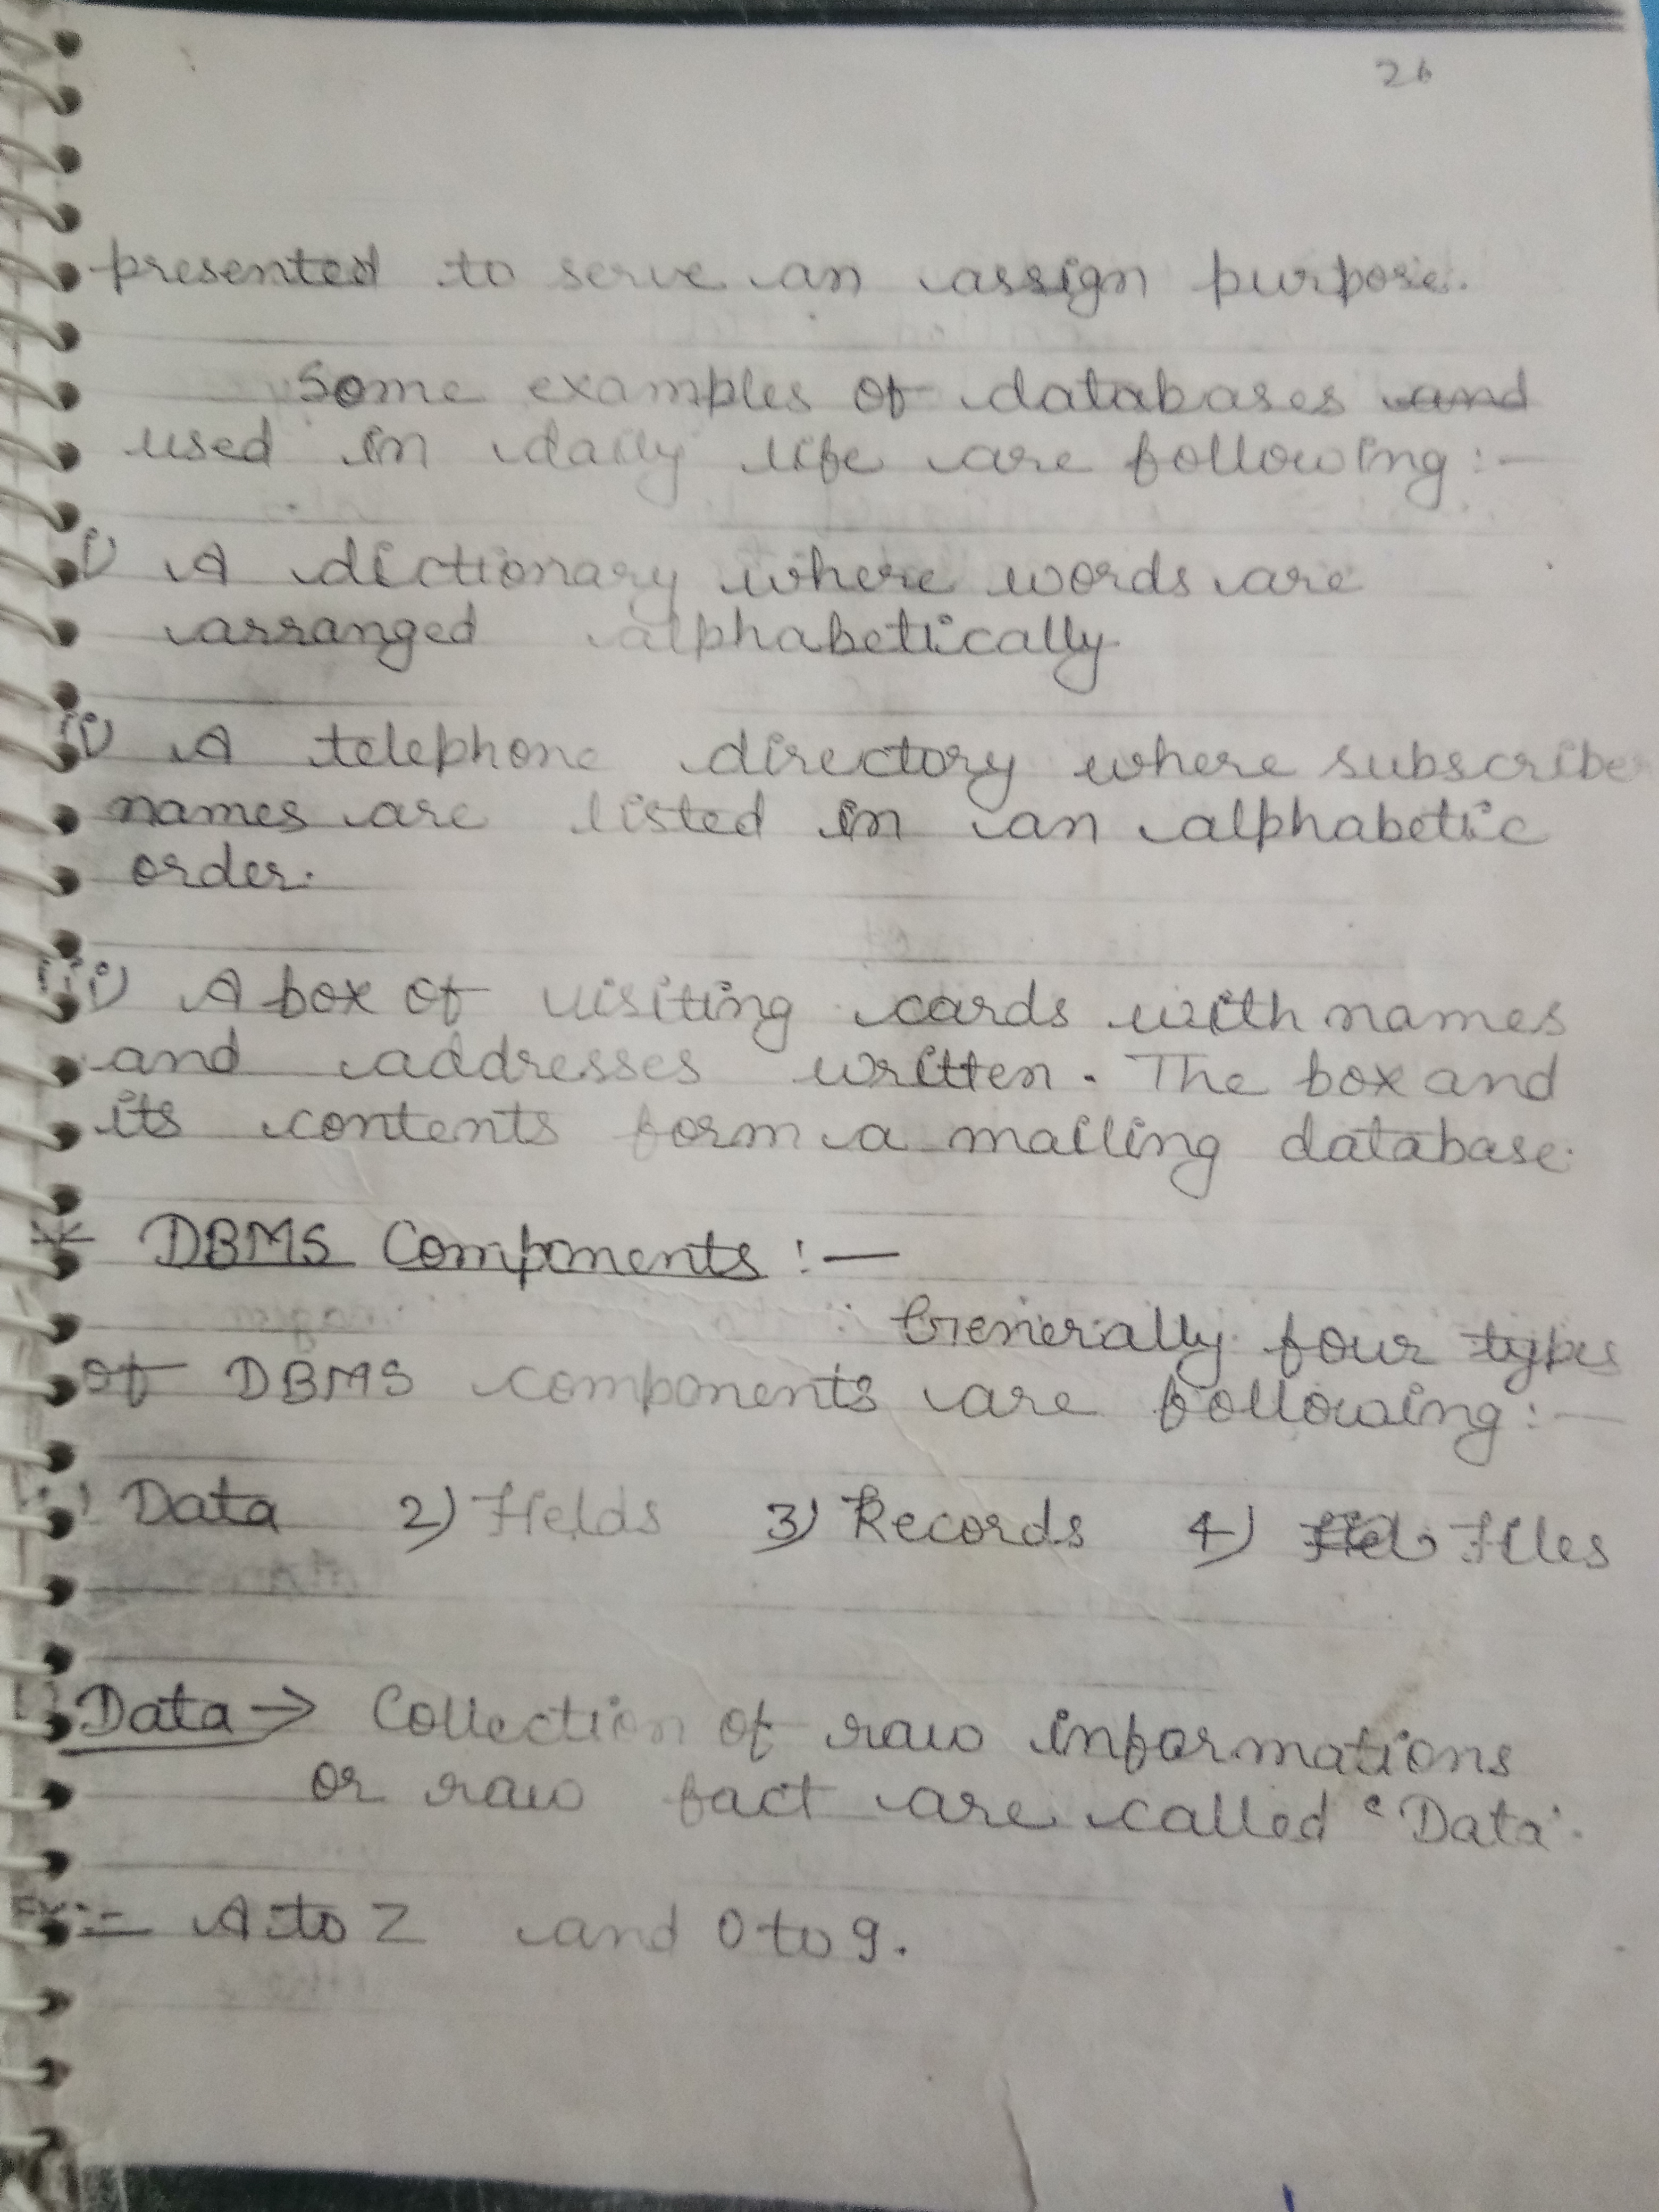 26
presented to serve an assign purpose.
Some examples of databases and
used in daily life are following :-
i) A dictionary where words are
arranged alphabetically
ii) A telephone directory where subscriber
names are listed in an alphabetic
order.
iii) A box of visiting cards with names
and addresses written. The box and
its contents form a mailing database.
* DBMS Components :—
Generally four types
of DBMS components are following :—
1) Data 2) Fields 3) Records 4) Files
Data → Collection of raw informations
or raw fact are called 'Data'.
Ex:= A to Z and 0 to 9.